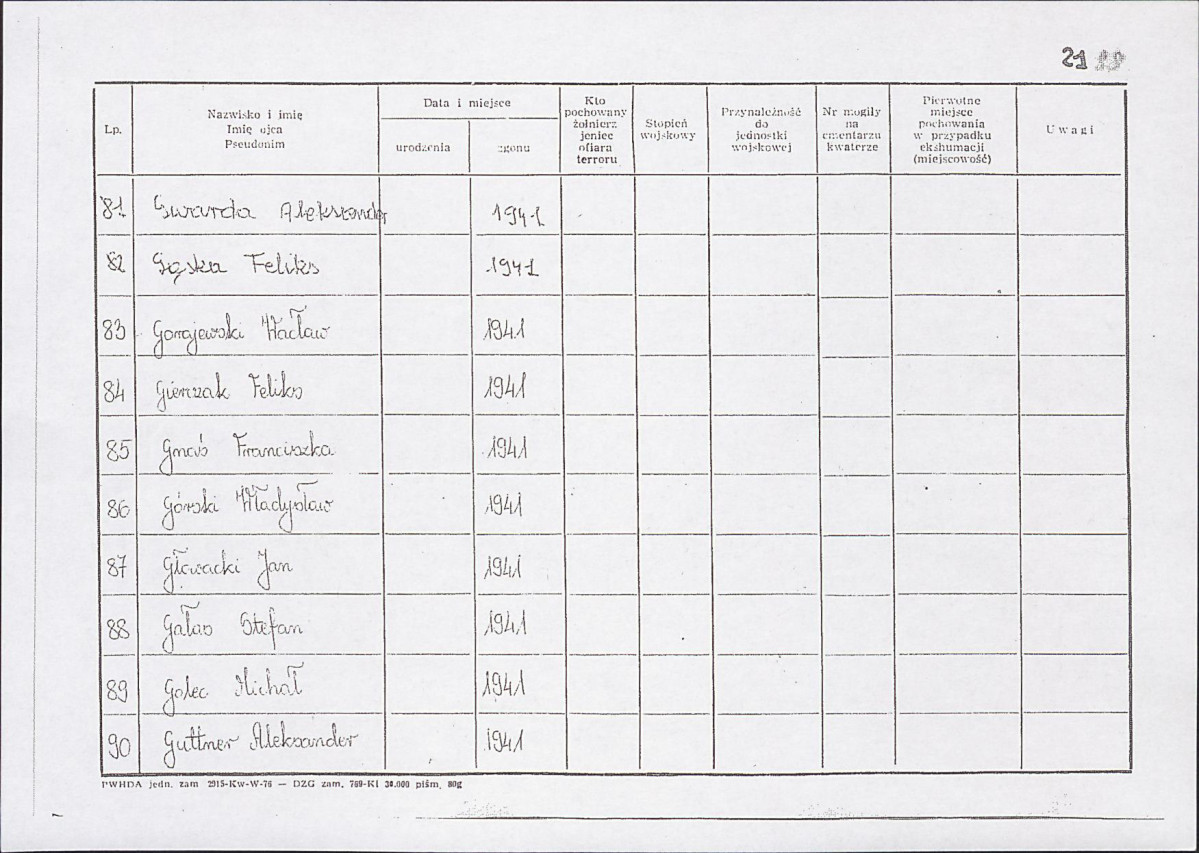 21 19
Lp.
Nazwisko i imię
Imię ojca
Pseudonim
Data i miejsce
urodzenia
zgonu
Kto
pochowany
żołnierz
jeniec
ofiara
terroru
Stopień
wojskowy
Przynależność
do
jednostki
wojskowej
Nr mogiły
na
cmentarzu
kwaterze
Pierwotne
miejsce
pochowania
w przypadku
ekshumacji
(miejscowość)
Uwagi
81 Gwarda Aleksander 1941
82 Gąska Feliks 1941
83 Gorajewski Wacław 1941
84 Gierczak Feliks 1941
85 Franciszka 1941
86 Górski Władysław 1941
87 Głowacki Jan 1941
88 Gałas Stefan 1941
89 Golec Michał 1941
90 Guttner Aleksander 1941
PWHDA jedn. zam 2915-Kw-W-76 — DZG zam. 769-KI 30.000 piśm. 80g